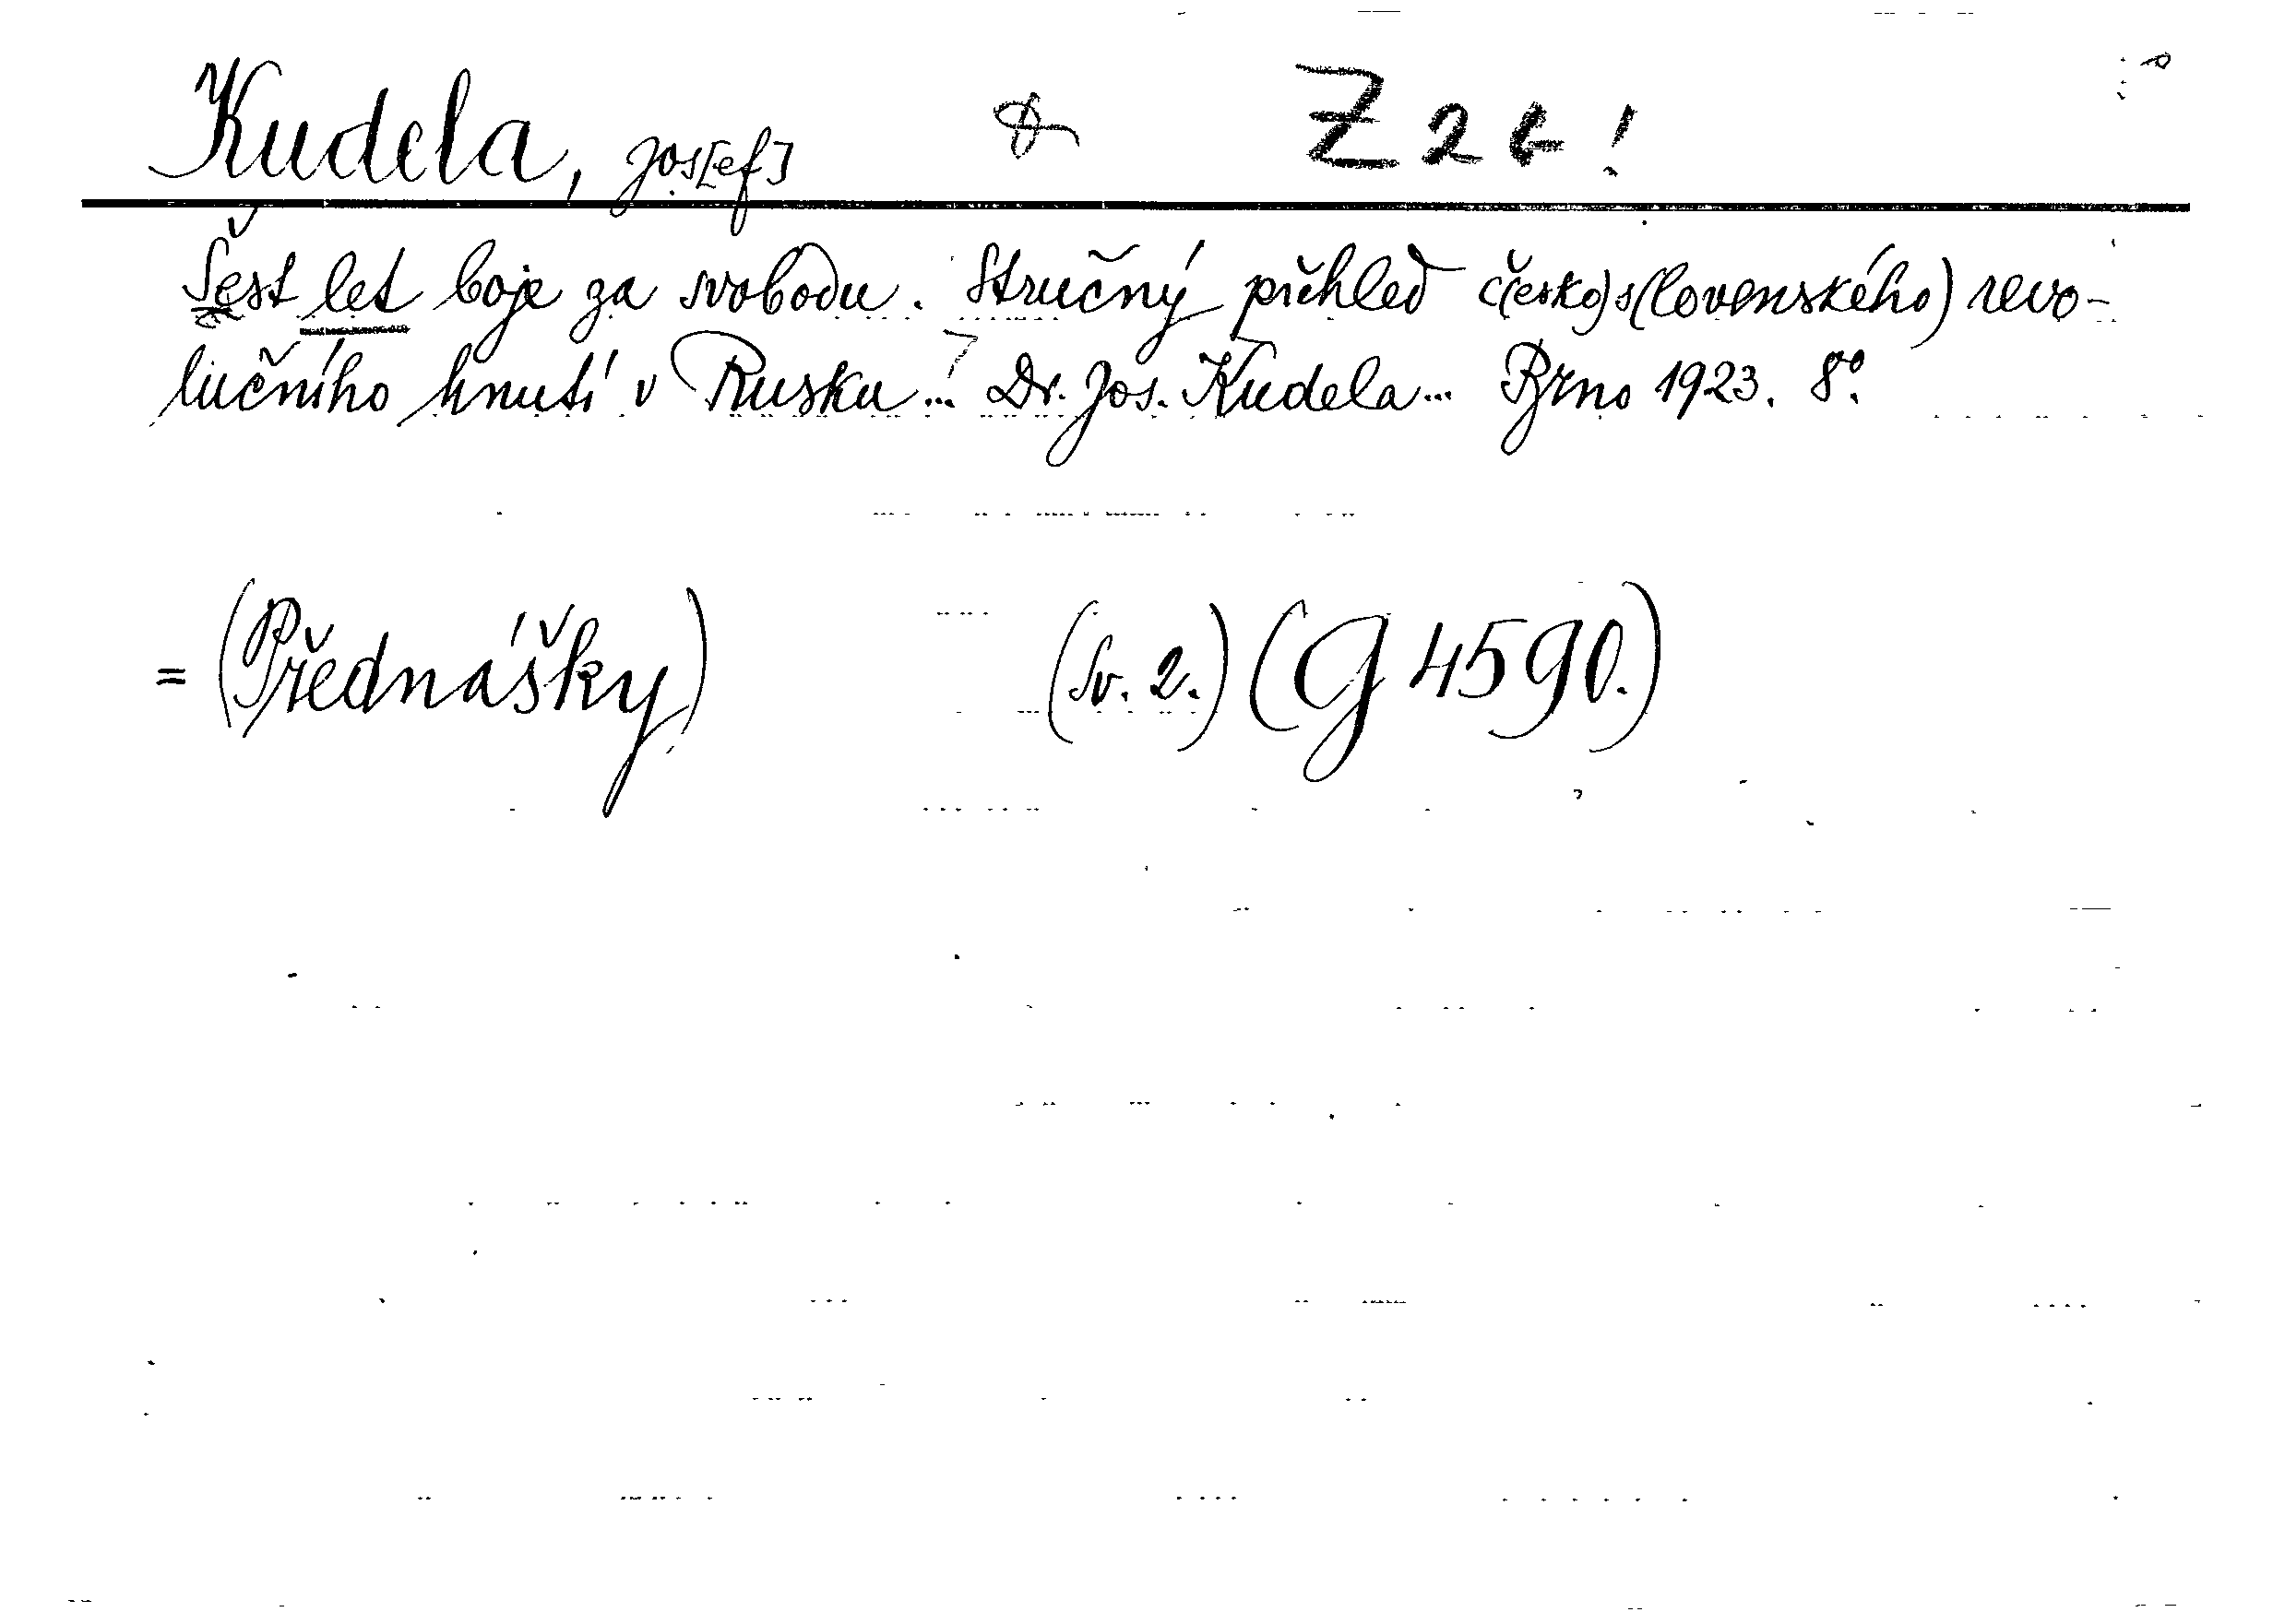 Kudela, Jos[ef]
Šest let boje za svobodu. Stručný přehled č(esko)s(lovenského) revo-
lučního hnutí v Rusku... Dr. Jos. Kudela... Brno 1923. 8°.
= (Přednášky) (Sv. 2.) (G 4590.)